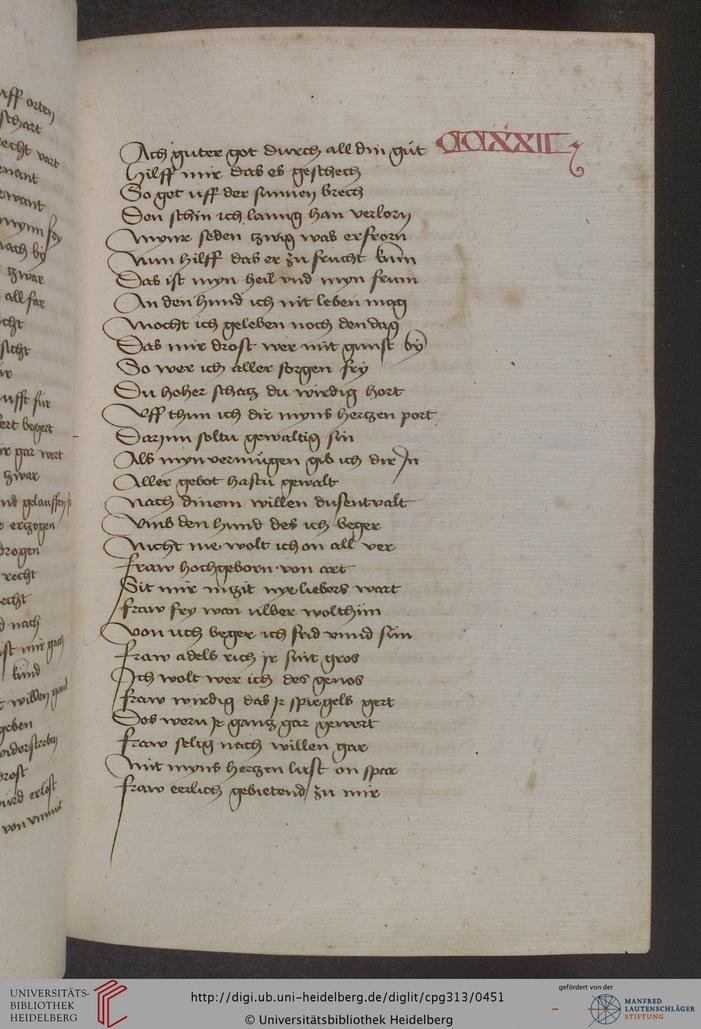 uff orten
schart
recht vart
nant
want
nach by
zwar
all far
cht
sicht
ufft für
ert begert
ir gar wert
zwar
nd gelauffen
erzogen
drogen
recht
echt
d nach
kund
geben
widerstreben
drost
würd erlöst
von unmut
CCCXXII
Ach guter got durch all din güt
Hilff mir das es geschech
So get uff der sunnen brech
Den schin ich laung han verlorn
Mynr seden zwig was erfrorn
Nun hilff das er zu frucht kum
Das ist myn heil und myn frum
An den hund ich nit leben mag
Mocht ich geleben noch den dag
Das mir drost wer mit gunst by
So wer ich aller sorgen fry
Du hoher schatz du wirdig hort
Uff thun ich dir myns hertzen port
Darjnn soltu gewaltig sin
Als myn vermügen gib ich dir Jn
Aller gebot hastu gewalt
Nach dinem willen dusentvalt
Umb den hund des ich beger
Nicht me wolt ich on all ver
Fraw hochgeborn von art
Sit mir nyzit nye liebers wart
Fraw fry wan ulber wolthun
Von uch beger ich frid unnd sün
Fraw adels rich jr sint gros
Ich wolt wer ich des genos
Fraw wirdig das jr spiegels gert
Des wern jr gantz gar gewert
Fraw selig nach willen gar
Mit myns hertzen lust on spar
Fraw eerlich gebietend zu mir
UNIVERSITÄTS-
BIBLIOTHEK
HEIDELBERG
http://digi.ub.uni-heidelberg.de/diglit/cpg313/0451
© Universitätsbibliothek Heidelberg
gefördert von der
MANFRED
LAUTENSCHLÄGER
STIFTUNG